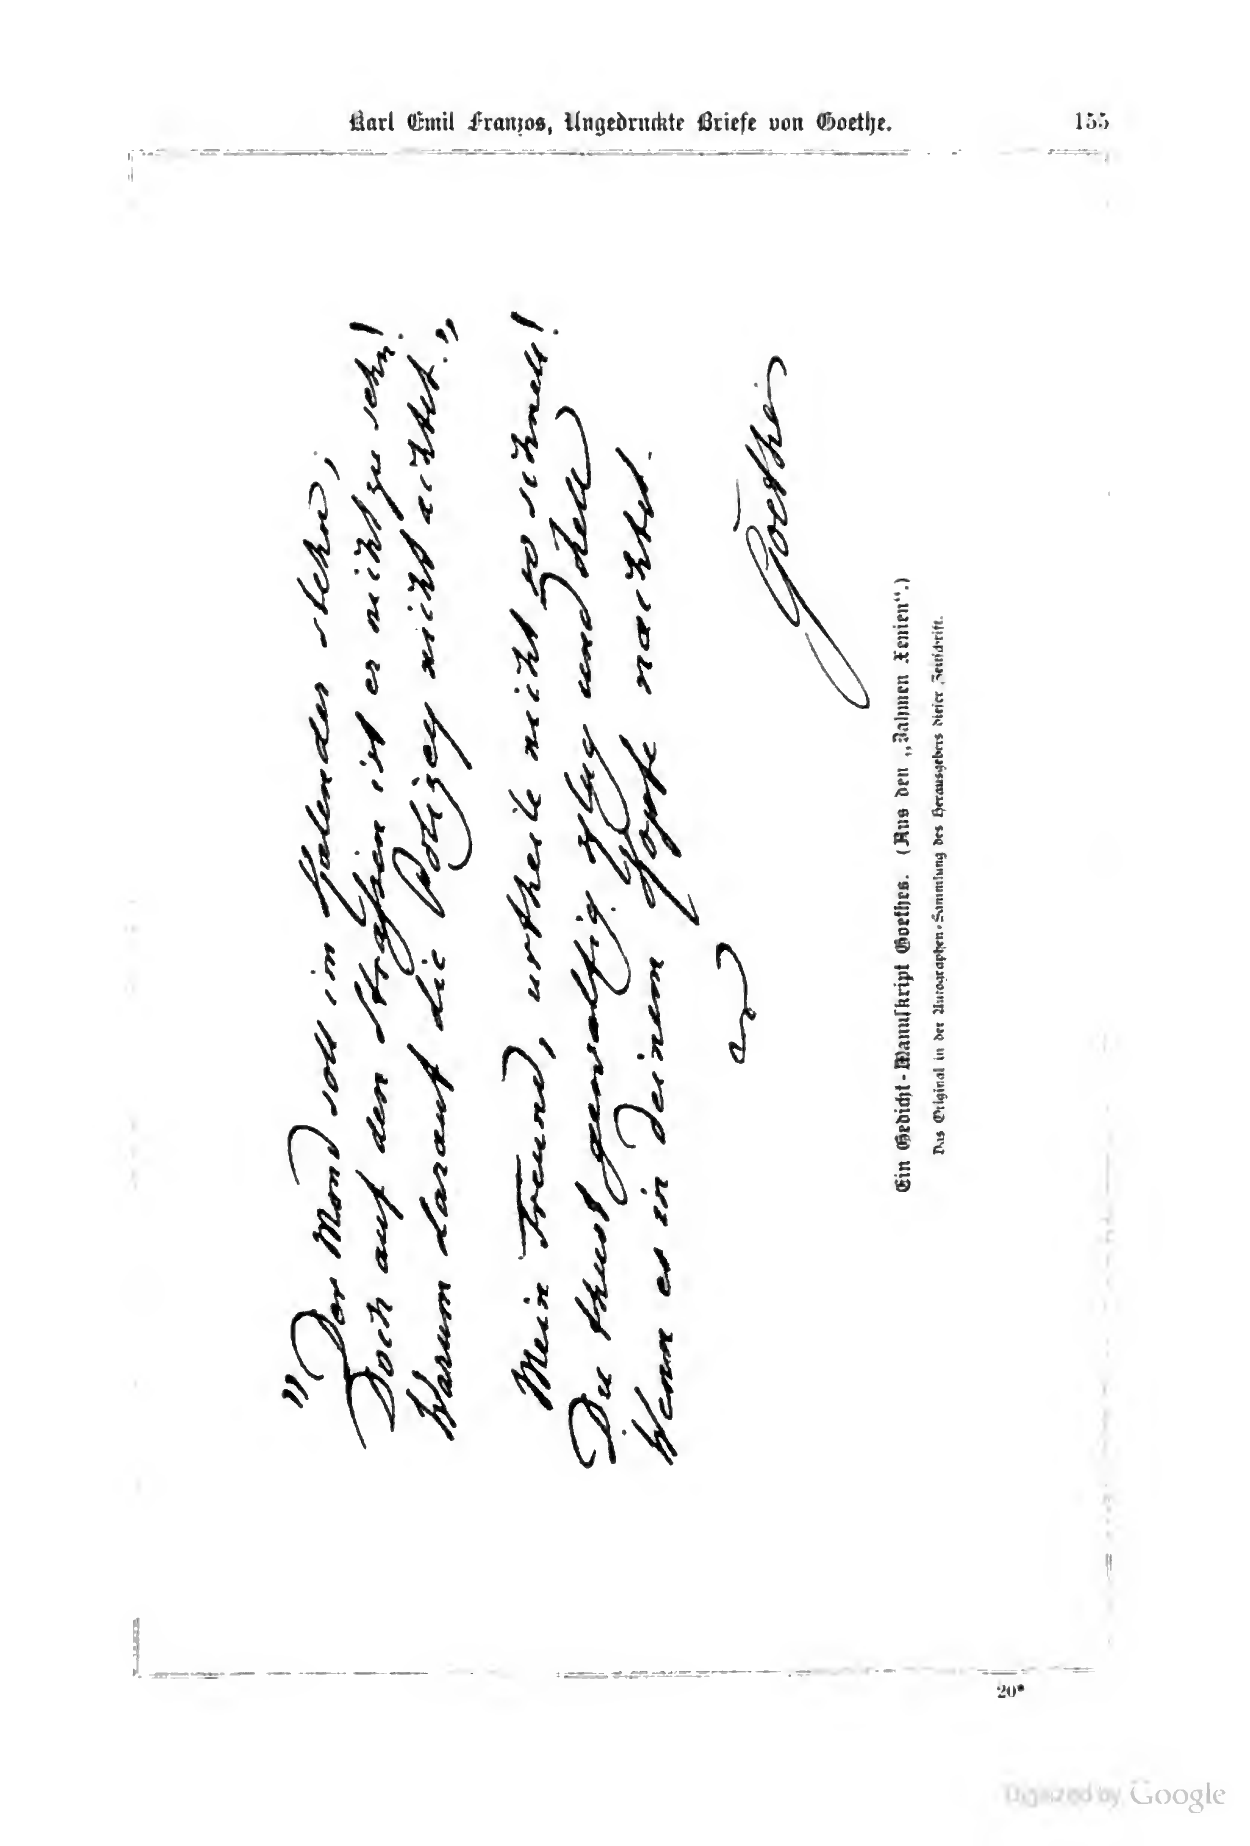 Karl Emil Franzos, Ungedruckte Briefe von Goethe. 155
„Der Mond soll im Calender stehn;
Doch auf den Straßen ist er nicht zu sehn!
Warum darauf die Polizey nicht achtet.“
Mein Freund, urtheile nicht so schnell!
Du thust gewaltig klug und hell
Wenn es in deinem Kopfe nachtet.
Goethe
Ein Gedicht-Manuskript Goethes. (Aus den „Zahmen Xenien“.)
Das Original in der Autographen-Sammlung des Herausgebers dieser Zeitschrift.
20*
Digitized by Google